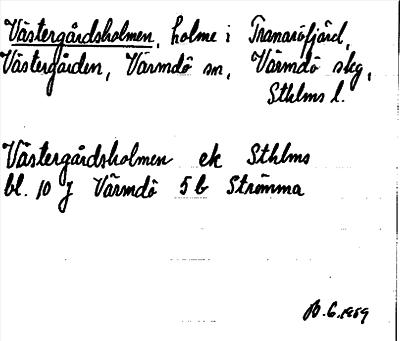 Västergårdsholmen, holme i Tranaröfjärd,
Västergården, Värmdö sn, Värmdö skg,
Sthlms l.
Västergårdsholmen ek Sthlms
bl. 10 J Värmdö 5 b Strömma
1959